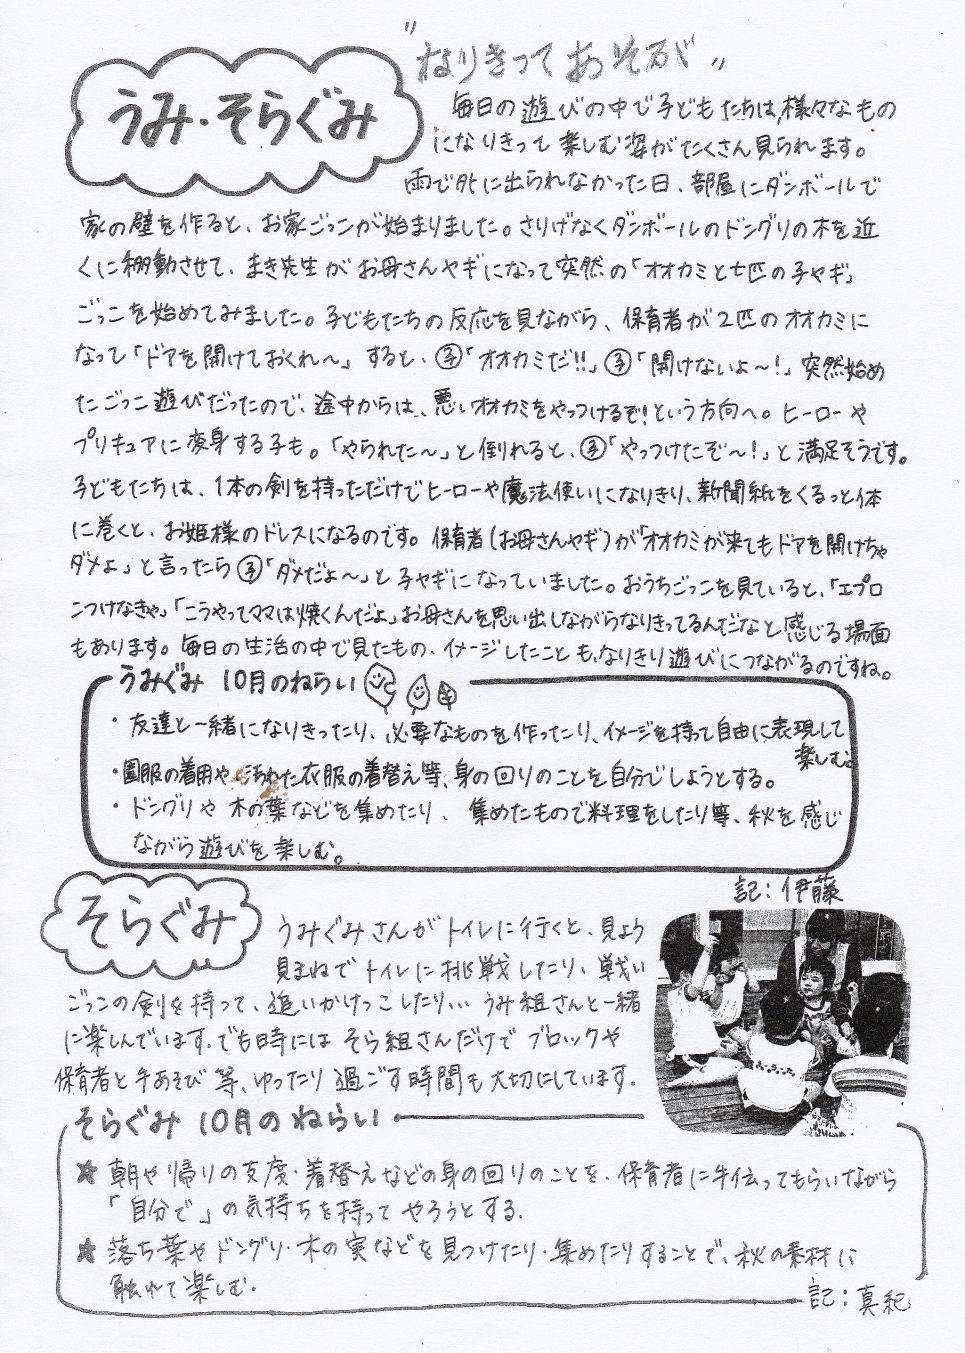 うみ・そらぐみ
"なりきってあそるば"
毎日の遊びの中で子どもたちは、様々なもの
になりきって楽しむ姿がたくさん見られます。
雨で外に出られなかった日、部屋にダンボールで
家の壁を作ると、お家ごっこが始まりました。さりげなくダンボールのドングリの木を近
くに移動させて、まき先生がお母さんヤギになって突然の「オオカミと七匹の子ヤギ」
ごっこを始めてみました。子どもたちの反応を見ながら、保育者が2匹のオオカミに
なって「ドアを開けておくれ〜」すると、㋙「オオカミだ!!」㋙「開けないよ〜!」突然始め
たごっこ遊びだったので、途中からは、悪いオオカミをやっつけるぞ!という方向へ。ヒーローや
プリキュアに変身する子も。「やられた〜」と倒れると、子「やっつけたぞ〜!」と満足そうです。
子どもたちは、1本の剣を持っただけでヒーローや魔法使いになりきり、新聞紙をくるっと体
に巻くと、お姫様のドレスになるのです。保育者(お母さんヤギ)が「オオカミが来てもドアを開けちゃ
ダメよ」と言ったら子「ダメだよ〜」と子ヤギになっていました。おうちごっこを見ていると、「エプロ
ンつけなきゃ」「こうやってママは焼くんだよ」お母さんを思い出しながらなりきってるんだなと感じる場面
もあります。毎日の生活の中で見たもの、イメージしたことも、なりきり遊びにつながるのですね。
うみぐみ 10月のねらい
・友達と一緒になりきったり、必要なものを作ったり、イメージを持って自由に表現して
楽しむ。
・園服の着用や汚れた衣服の着替え等、身の回りのことを自分でしようとする。
・ドングリや木の葉などを集めたり、集めたもので料理をしたり等、秋を感じ
ながら遊びを楽しむ。
記：伊藤
そらぐみ
うみぐみさんがトイレに行くと、見よう
見まねでトイレに挑戦したり、戦い
ごっこの剣を持って、追いかけっこしたり… うみ組さんと一緒
に楽しんでいます。でも時には そら組さんだけで ブロックや
保育者と手あそび等、ゆったり過ごす時間も大切にしています。
そらぐみ 10月のねらい
★朝や帰りの支度・着替えなどの身の回りのことを、保育者に手伝ってもらいながら
「自分で」の気持ちを持ってやろうとする。
★落ち葉やドングリ・木の実などを見つけたり・集めたりすることで、秋の素材に
触れて楽しむ。
記：真紀